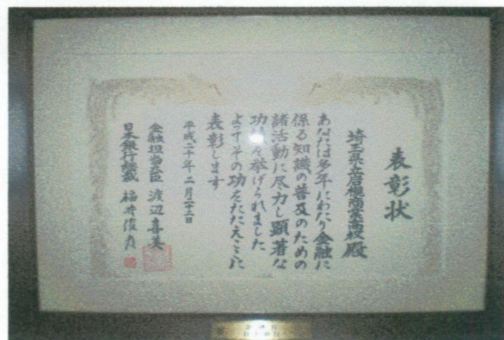 表彰状
埼玉県立岩槻商業高校殿
あなたは多年にわたり金融に
係る知識の普及のための
諸活動に尽力し顕著な
功績を挙げられました
よってその功をたたえここに
表彰します
平成二十年二月二十二日
金融担当大臣 渡辺喜美
日本銀行総裁 福井俊彦